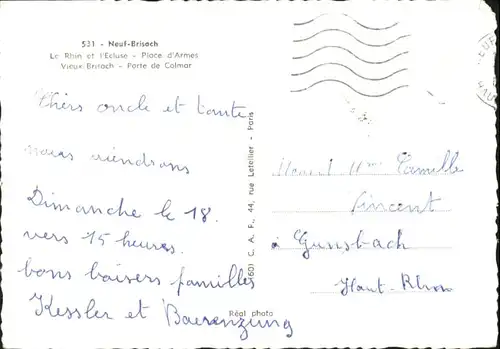 531 - Neuf-Brisach
Le Rhin et l'Ecluse - Place d'Armes
Vieux Brisach - Porte de Colmar
Chers oncle et tante
nous viendrons
Dimanche le 18.
vers 15 heures.
bons baisers familles
Kessler et Baerenzung
C. A. P., 44, rue Letellier - Paris
Réal photo
Mme Camille
Vincent
à Gunsbach
Haut-Rhin